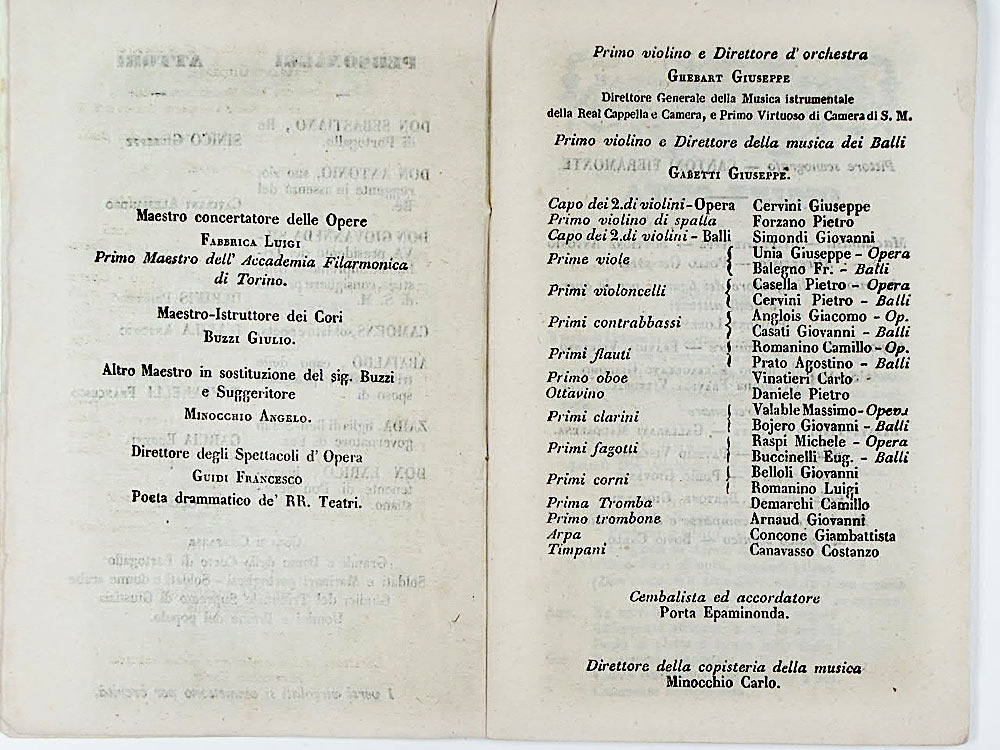 Maestro concertatore delle Opere
FABBRICA LUIGI
Primo Maestro dell' Accademia Filarmonica
di Torino.
Maestro-Istruttore dei Cori
BUZZI GIULIO.
Altro Maestro in sostituzione del sig. Buzzi
e Suggeritore
MINOCCHIO ANGELO.
Direttore degli Spettacoli d' Opera
GUIDI FRANCESCO
Poeta drammatico de' RR. Teatri.
Primo violino e Direttore d' orchestra
GHEBART GIUSEPPE
Direttore Generale della Musica istrumentale
della Real Cappella e Camera, e Primo Virtuoso di Camera di S. M.
Primo violino e Direttore della musica dei Balli
GABETTI GIUSEPPE.
Capo dei 2. di violini - Opera Cervini Giuseppe
Primo violino di spalla Forzano Pietro
Capo dei 2. di violini - Balli Simondi Giovanni
Prime viole { Unia Giuseppe - Opera
Balegno Fr. - Balli
Primi violoncelli { Casella Pietro - Opera
Cervini Pietro - Balli
Primi contrabbassi { Anglois Giacomo - Op.
Casati Giovanni - Balli
Primi flauti { Romanino Camillo - Op.
Prato Agostino - Balli
Primo oboe Vinatieri Carlo
Ottavino Daniele Pietro
Primi clarini { Valable Massimo - Opera
Bojero Giovanni - Balli
Primi fagotti { Raspi Michele - Opera
Buccinelli Eug. - Balli
Primi corni { Belloli Giovanni
Romanino Luigi
Prima Tromba Demarchi Camillo
Primo trombone Arnaud Giovanni
Arpa Concone Giambattista
Timpani Canavasso Costanzo
Cembalista ed accordatore
Porta Epaminonda.
Direttore della copisteria della musica
Minocchio Carlo.